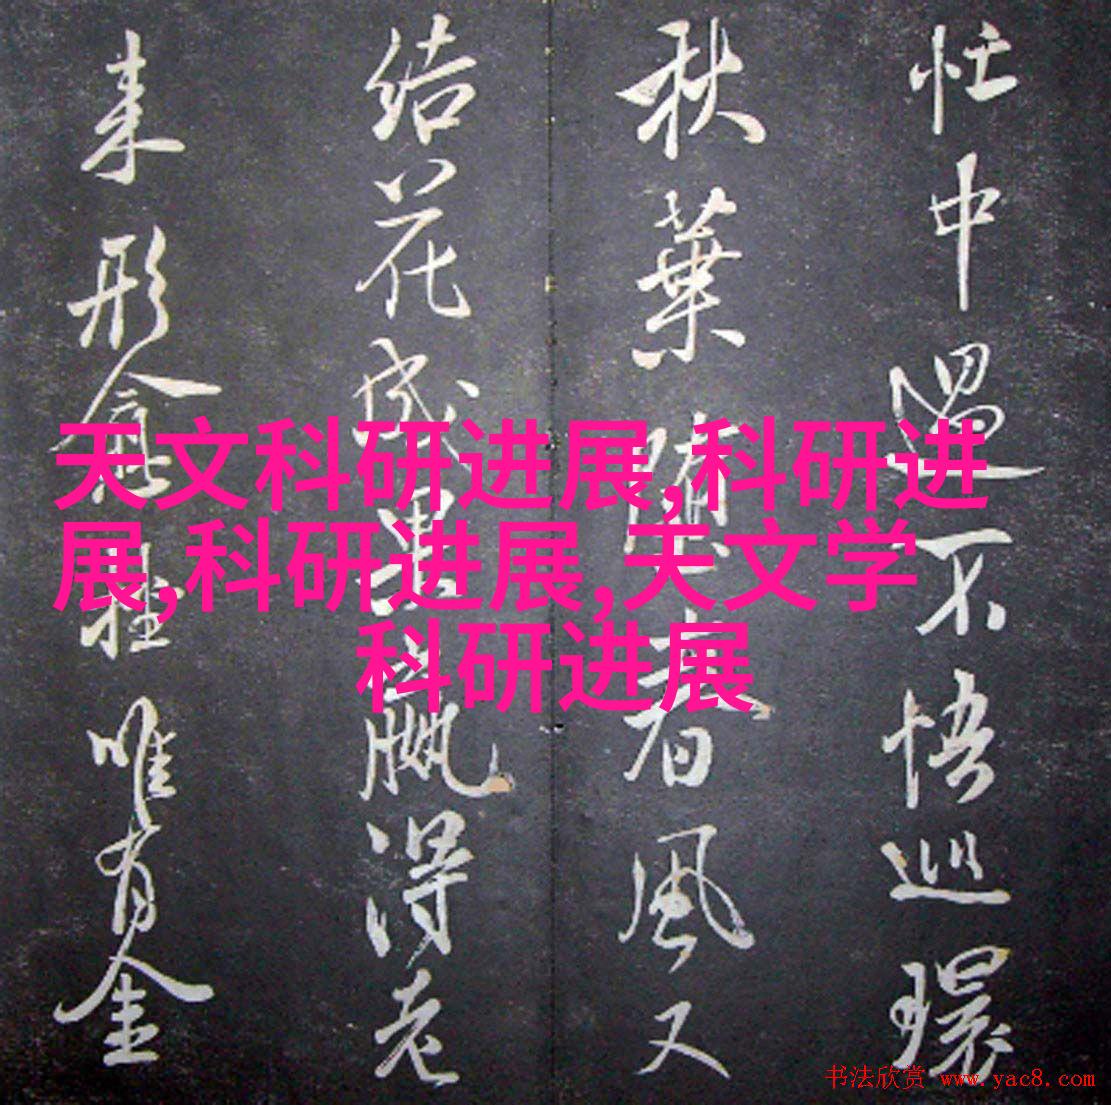 忙中遇不悟巡環
秋葉隨
春風又
结花成
嬴得老
来形
唯有金
天文科研进展,科研进
展,科研进展,天文学
科研进展
书法欣赏 www.yac8.com